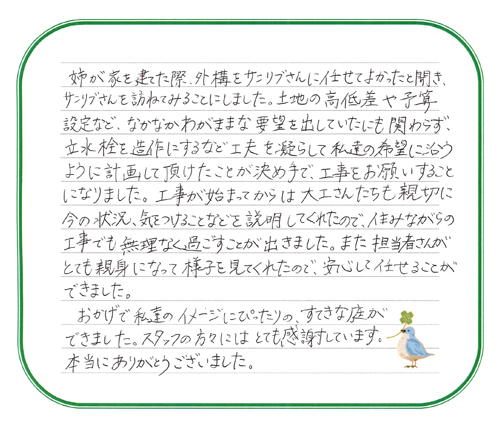 姉が家を建てた際、外構をサンリブさんに任せてよかったと聞き、
サンリブさんを訪ねてみることにしました。土地の高低差や予算
設定など、なかなかわがままな要望を出していたにも関わらず、
立水栓を造作にするなど工夫を凝らして私達の希望に沿う
ように計画して頂けたことが決め手で、工事をお願いすること
になりました。工事が始まってからは大工さんたちも親切に
今の状況、気をつけることなどを説明してくれたので、住みながらの
工事でも無理なく過ごすことが出きました。また担当者さんが
とても親身になって様子を見てくれたので、安心して任せることが
できました。
おかげで私達のイメージにぴったりの、すてきな庭が
できました。スタッフの方々にはとても感謝しています。
本当にありがとうございました。